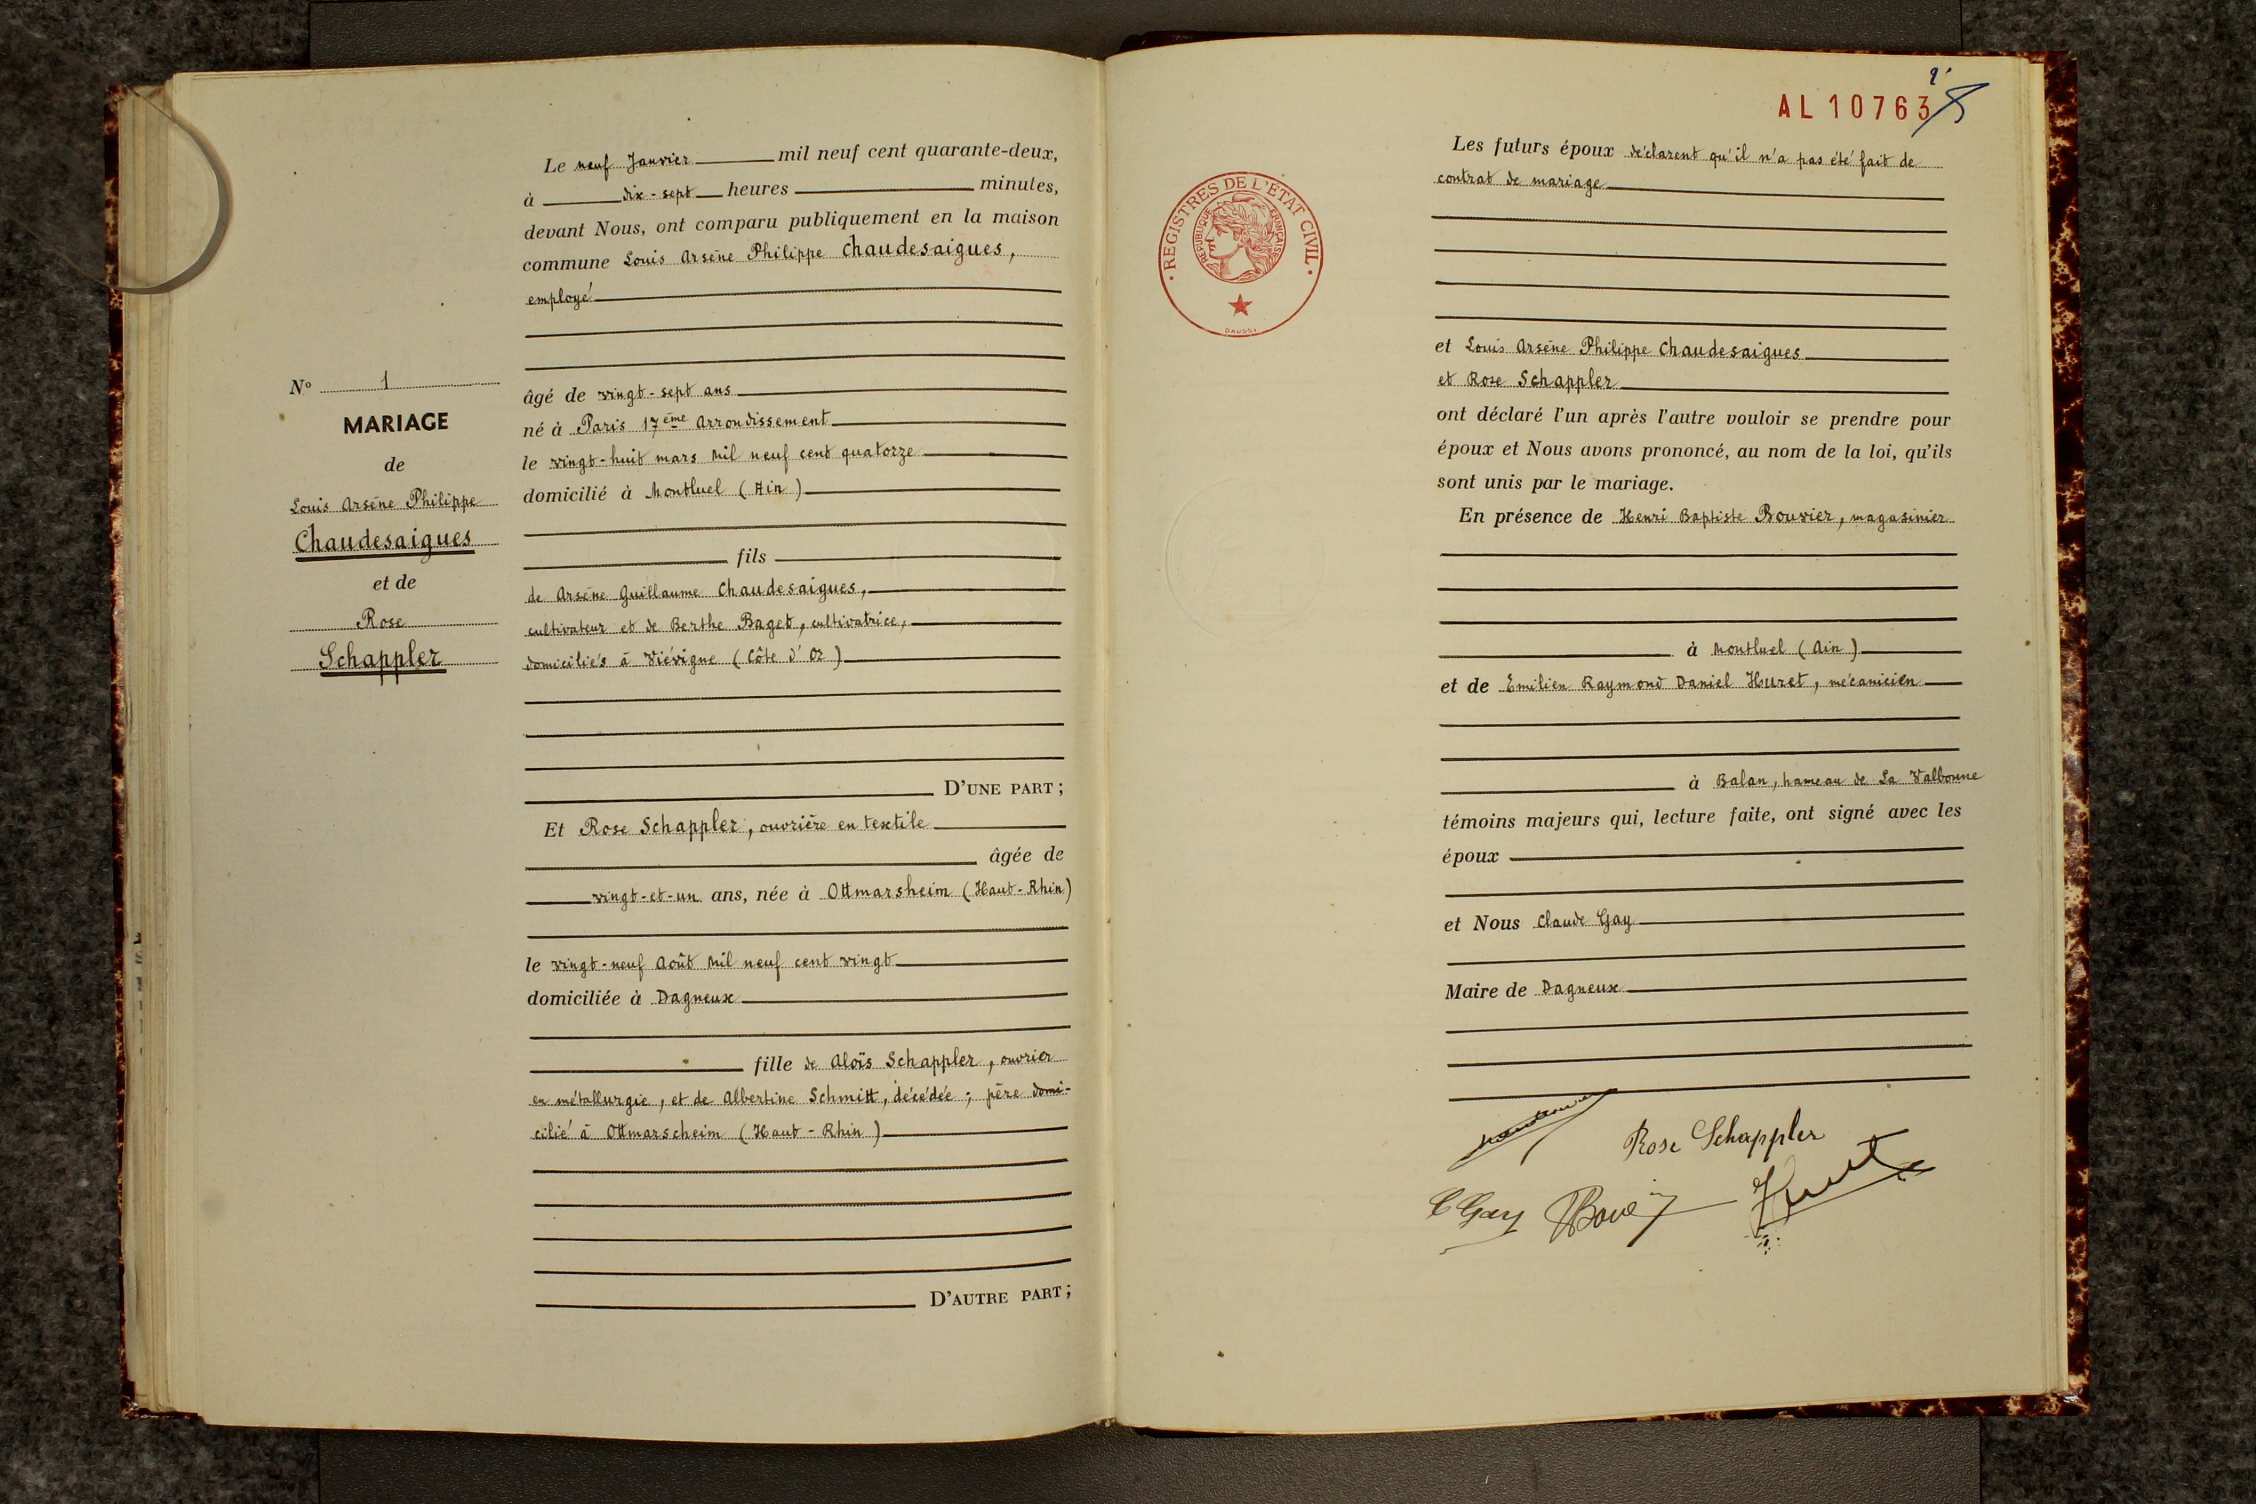 Le neuf Janvier mil neuf cent quarante-deux,
à dix-sept heures minutes,
devant Nous, ont comparu publiquement en la maison
commune Louis Arsène Philippe Chaudesaigues,
employé
N° 1
MARIAGE
de
Louis Arsène Philippe
Chaudesaigues
et de
Rose
Schappler
âgé de vingt-sept ans
né à Paris 17ème Arrondissement
le vingt-huit mars mil neuf cent quatorze
domicilié à Montluel (Ain)
fils
de Arsène Guillaume Chaudesaigues,
cultivateur et de Berthe Baget, cultivatrice,
domiciliés à Viévigne (Côte d'Or)
D'UNE PART;
Et Rose Schappler, ouvrière en textile
âgée de
vingt-et-un ans, née à Ottmarsheim (Haut-Rhin)
le vingt-neuf Août mil neuf cent vingt
domiciliée à Dagneux
fille de Aloïs Schappler, ouvrier
en métallurgie, et de Albertine Schmitt, décédée; père domi-
cilié à Ottmarscheim (Haut-Rhin)
D'AUTRE PART;
AL 10763
REGISTRES DE L'ETAT CIVIL
REPUBLIQUE FRANÇAISE
DAUSSI
Les futurs époux déclarent qu'il n'a pas été fait de
contrat de mariage
et Louis Arsène Philippe Chaudesaigues
et Rose Schappler
ont déclaré l'un après l'autre vouloir se prendre pour
époux et Nous avons prononcé, au nom de la loi, qu'ils
sont unis par le mariage.
En présence de Henri Baptiste Bouvier, magasinier
à Montluel (Ain)
et de Emilien Raymond Daniel Huret, mécanicien
à Balan, hameau de La Valbonne
témoins majeurs qui, lecture faite, ont signé avec les
époux
et Nous Claude Gay
Maire de Dagneux
Rose Schappler
C Gay
Huret